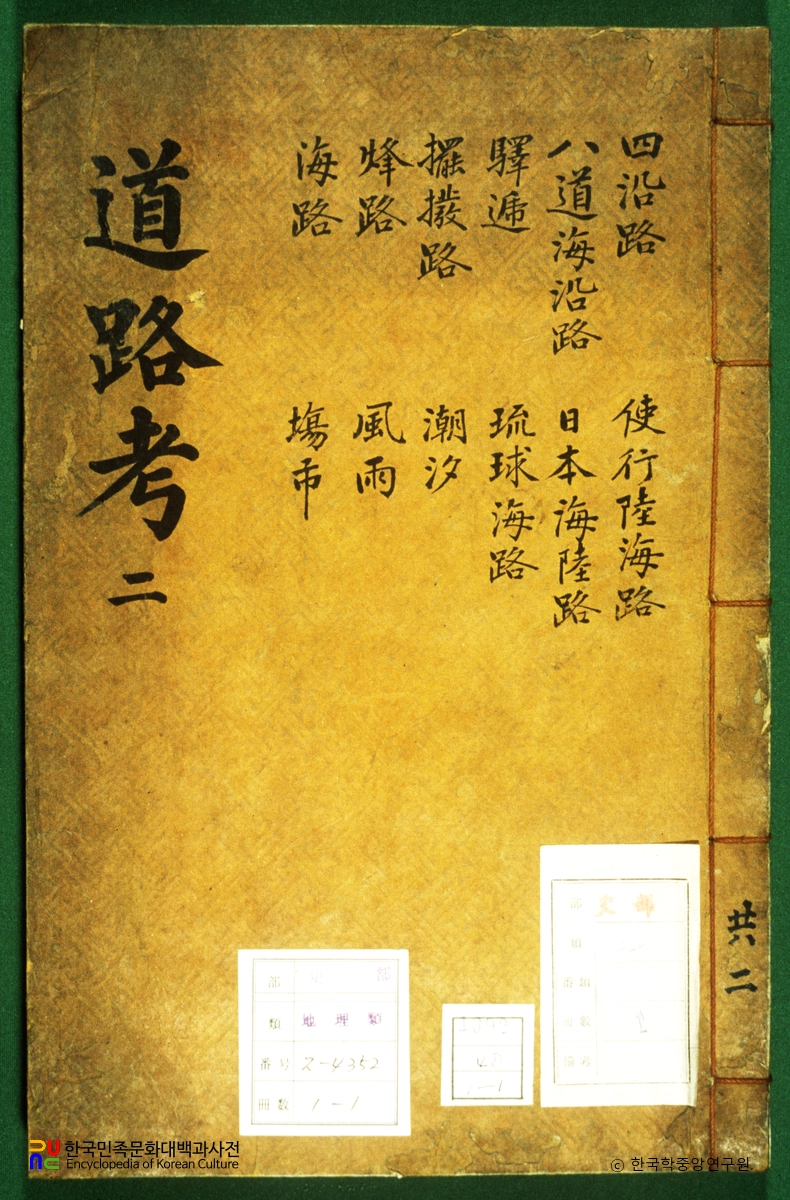 四沿路
八道海沿路
驛遞
擺撥路
烽路
海路
使行陸海路
日本海陸路
琉球海路
潮汐
風雨
塲市
道路考 二
共二
部 史 部
類
番號
冊數
備考
部 部
類 地理類
番号 2-4352
冊数 1-1
1-1
한국민족문화대백과사전
Encyclopedia of Korean Culture
© 한국학중앙연구원